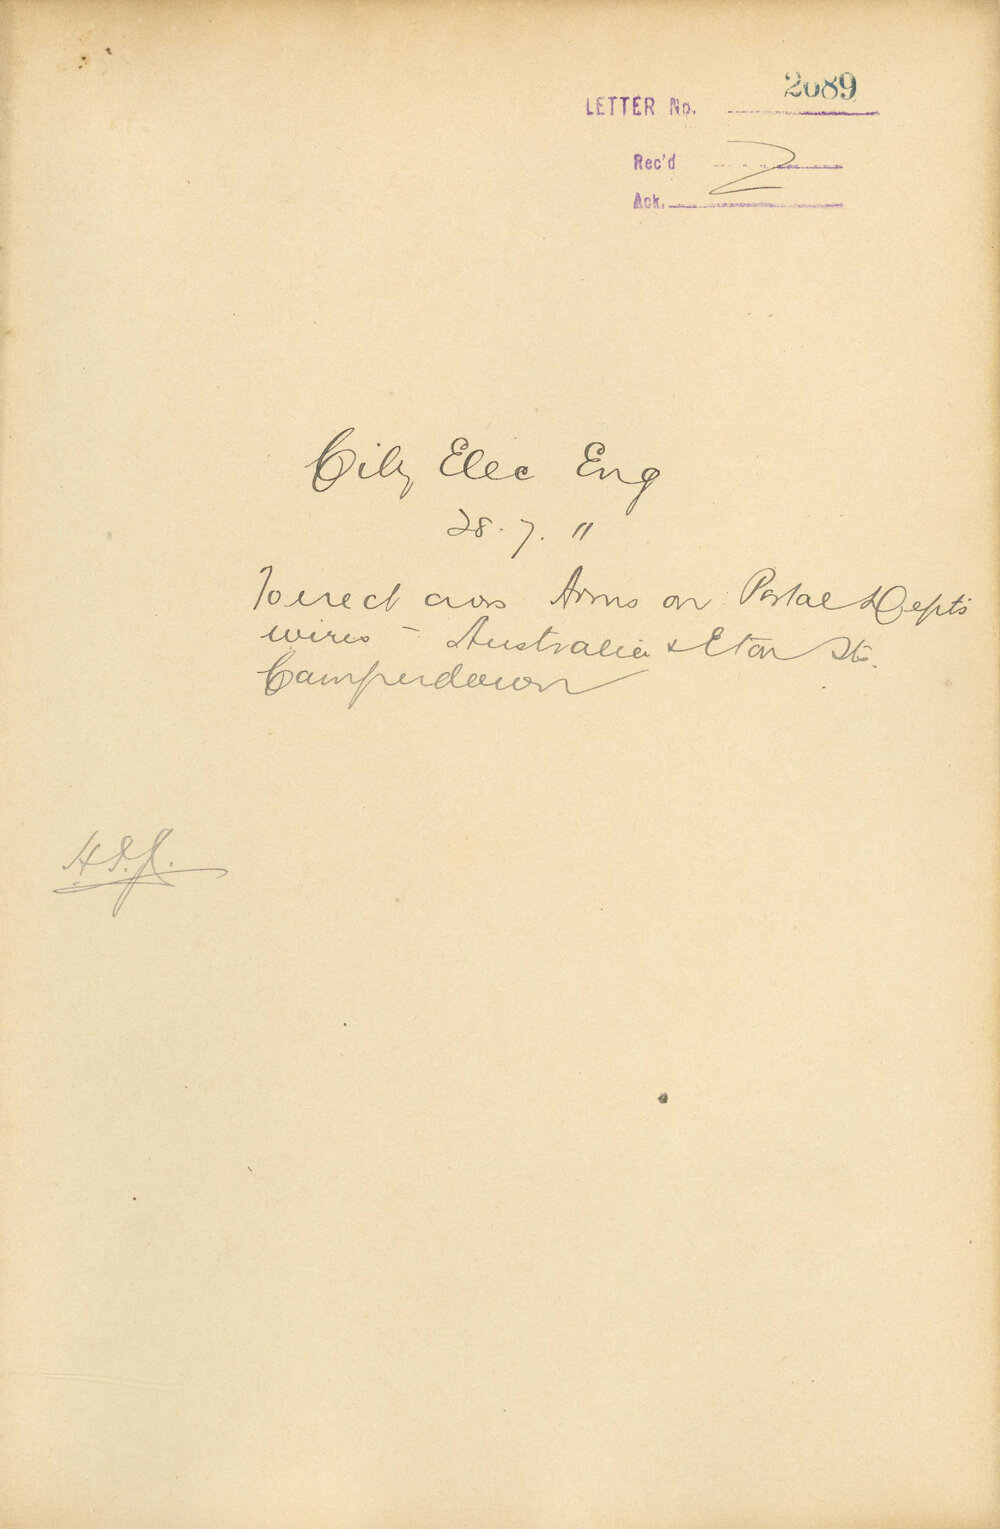 LETTER No. 2089
Rec'd
Ack.
City Elec Eng
28. 7. 11
To erect cross Arms on Postal Depts
wires - Australia & Eton Sts.
Camperdown